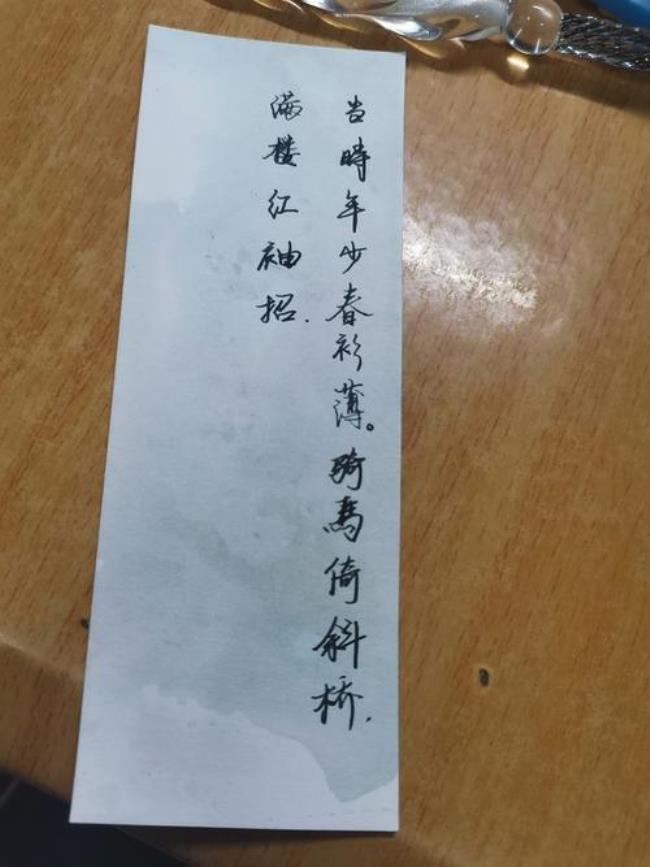 当時年少春衫薄。骑馬倚斜桥.
满楼红袖招.